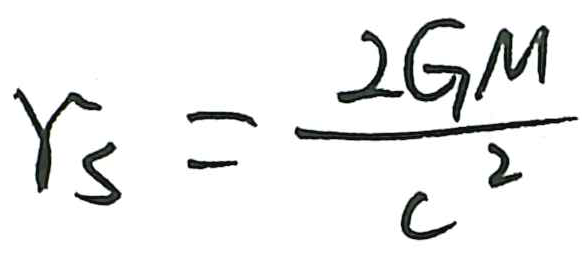 r_s = \frac{2GM}{c^2}